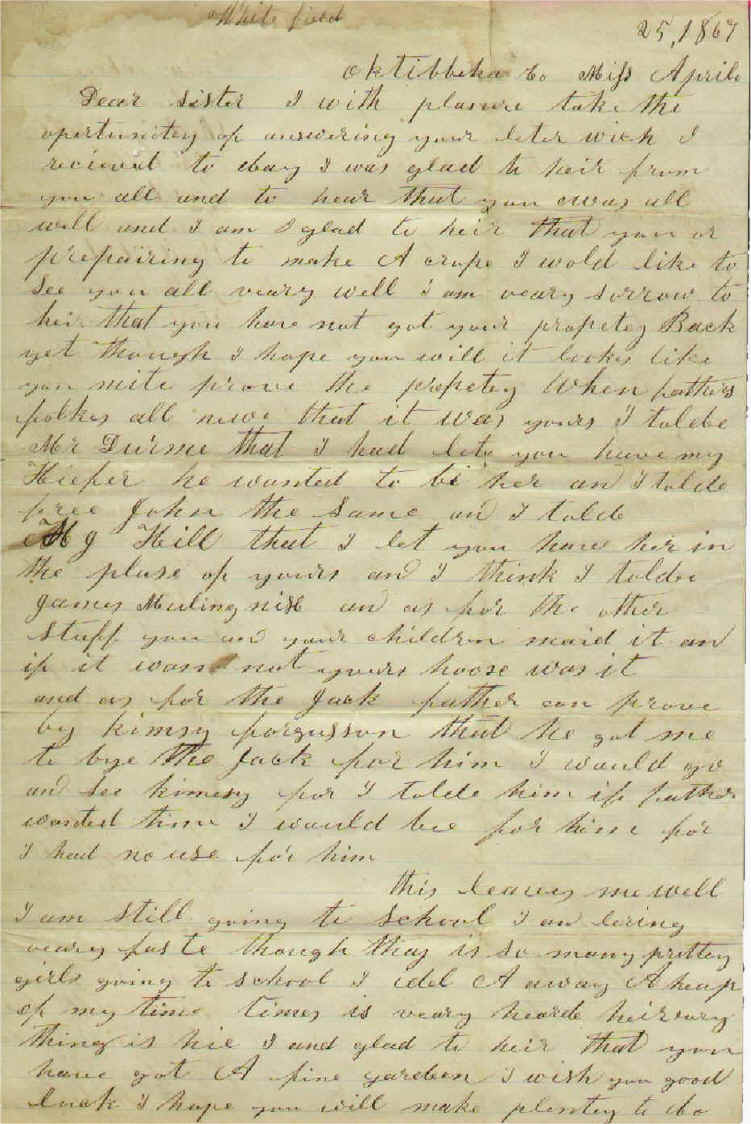 White field
25, 1867
oktibbeha Co Miss Aprile
Dear sister I with plasure take the
opertunitey of answering your leter wich I
recieved to day I was glad to heir from
you all and to hear that you was all
well and I am glad to heir that you ar
prepairing to make A crope I wold like to
see you all veary well I am veary sorrow to
heir that you have not got your propetey Back
yet though I hope you will it lookes like
you mite prove the propetey When fathers
folkes all nuwe that it was yours I tolde
Mr Durme that I had lete you have my
Hiefer he wanted to bi her an I tolde
free John the same an I tolde
M J Hill that I let you have her in
the plase of yours and I think I tolde
James an as for the other
stuff you an your children maid it an
if it was not yours hoose was it
and as for the Jack father can prove
by kimsy forgusson that he got me
to bye the Jack for him I would go
and see kimsy for I tolde him if father
wanted him I would be for him for
I had no use for him
this leaves me well
I am still going to school I an lering
veary faste though thay is so many prettey
girls going to school I idel A away A heap
of my time times is veary hearde heir evry
thing is hie I and glad to heir that you
have got A fine gardeen I wish you good
luck I hope you will make plentey to do